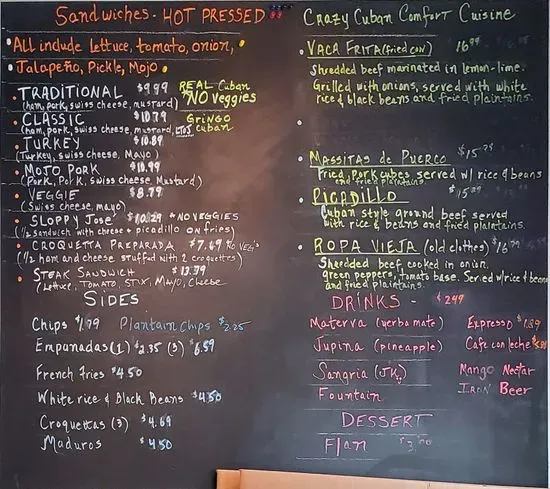 Sandwiches - HOT PRESSED
• All include lettuce, tomato, onion, •
• Jalapeño, Pickle, Mojo •
• TRADITIONAL $9.99 REAL Cuban
(ham, pork, swiss cheese, mustard) *NO veggies
• CLASSIC $10.79 GRINGO
(ham, pork, swiss cheese, mustard, LTOJ) Cuban
• TURKEY $10.89
(Turkey, Swiss cheese, Mayo)
• MOJO PORK $10.99
(Pork, Pork, Swiss cheese, Mustard)
• VEGGIE $8.79
(Swiss cheese, mayo)
• SLOPPY JOSE $10.29 *NO VEGGIES
(1/2 sandwich with cheese + picadillo ON fries)
• CROQUETTA PREPARADA $7.69 NO VEG's
(1/2 ham and cheese stuffed with 2 croquettes)
• STEAK SANDWICH $13.79
(Lettuce, TOMATO, STIX, MAYO, Cheese
SIDES
Chips $1.79 Plantain chips $2.25
Empanadas (1) $2.35 (3) $6.59
French fries $4.50
White rice & Black Beans $4.50
Croquettas (3) $4.69
Maduros $4.50
Crazy Cuban Comfort Cuisine
• VACA FRITA (fried cow) 16.99
Shredded beef marinated in lemon-lime.
Grilled with onions, served with white
rice & black beans and fried plaintains.
•
• MASSITAS de PUERCO $15.
Fried Pork cubes served w/ rice & beans
and fried plaintains.
• PICADILLO $15.
Cuban style ground beef served
with rice & beans and fried plaintains.
• ROPA VIEJA (old clothes) $16.
Shredded beef cooked in onion,
green peppers, tomato base. Served w/rice & beans
and fried plaintains.
DRINKS - $2.49
Materva (yerba mate) Expresso $1.89
Jupina (pineapple) Cafe con leche
Sangria (JK) Mango Nectar
Fountain IRON Beer
DESSERT
Flan